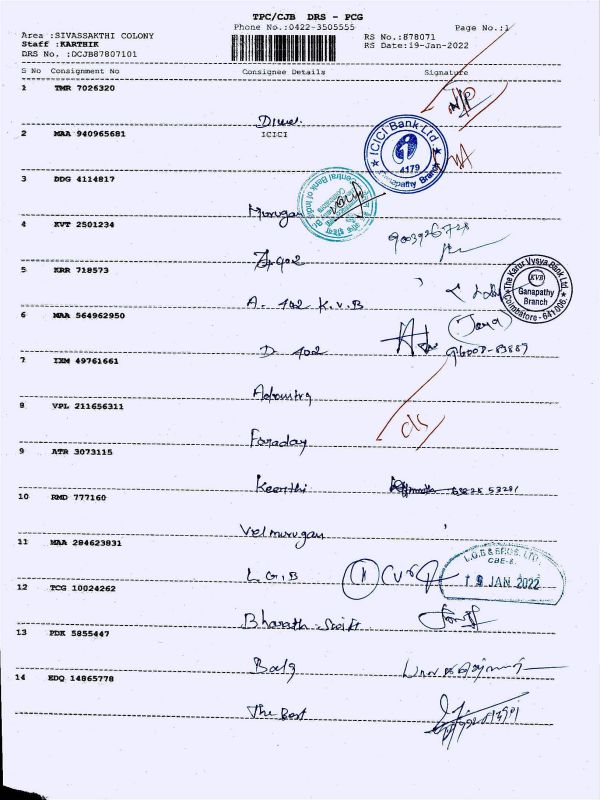 TPC/CJB DRS - PCG
Phone No.:0422-3505555
Page No.:1
Area :SIVASSAKTHI COLONY
RS No.:878071
Staff :KARTHIK
RS Date:19-Jan-2022
DRS No. :DCJB87807101
S No Consignment No Consignee Details Signature
1 TMR 7026320
2 MAA 940965681 ICICI
ICICI Bank Ltd
4179
Ganapathy Branch
3 DDG 4114817
Central Bank of India
Murugan
4 KVT 2501234
5 KRR 718573
The Karur Vysya Bank Ltd.
KVB
Ganapathy
Branch
Coimbatore - 641 006
A. 402 K.V.B
6 MAA 564962950
D 402
7 IXM 49761661
8 VPL 211656311
Faraday
9 ATR 3073115
Keerthi
10 RMD 777160
Velmurugan
11 MAA 284623831
L.G.B & BROS. LTD.
CBE-6.
19 JAN 2022
L.G.B
12 TCG 10024262
Bharath
13 PDK 5855447
14 EDQ 14865778
The Best